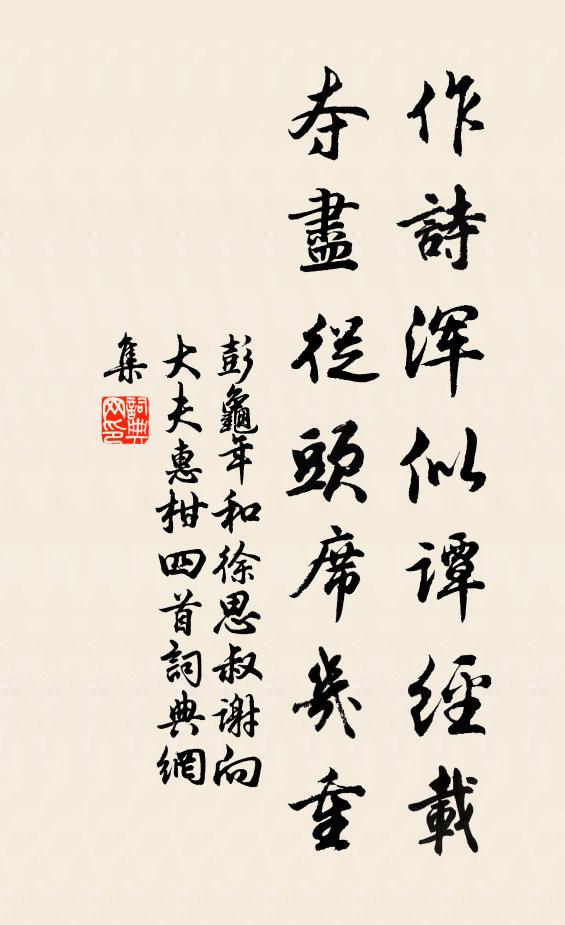 作詩渾似譚經載
夺盡從頭席幾重
彭龜年和徐思叔谢向
大夫惠柑四首詞典網
集
詞典
网印